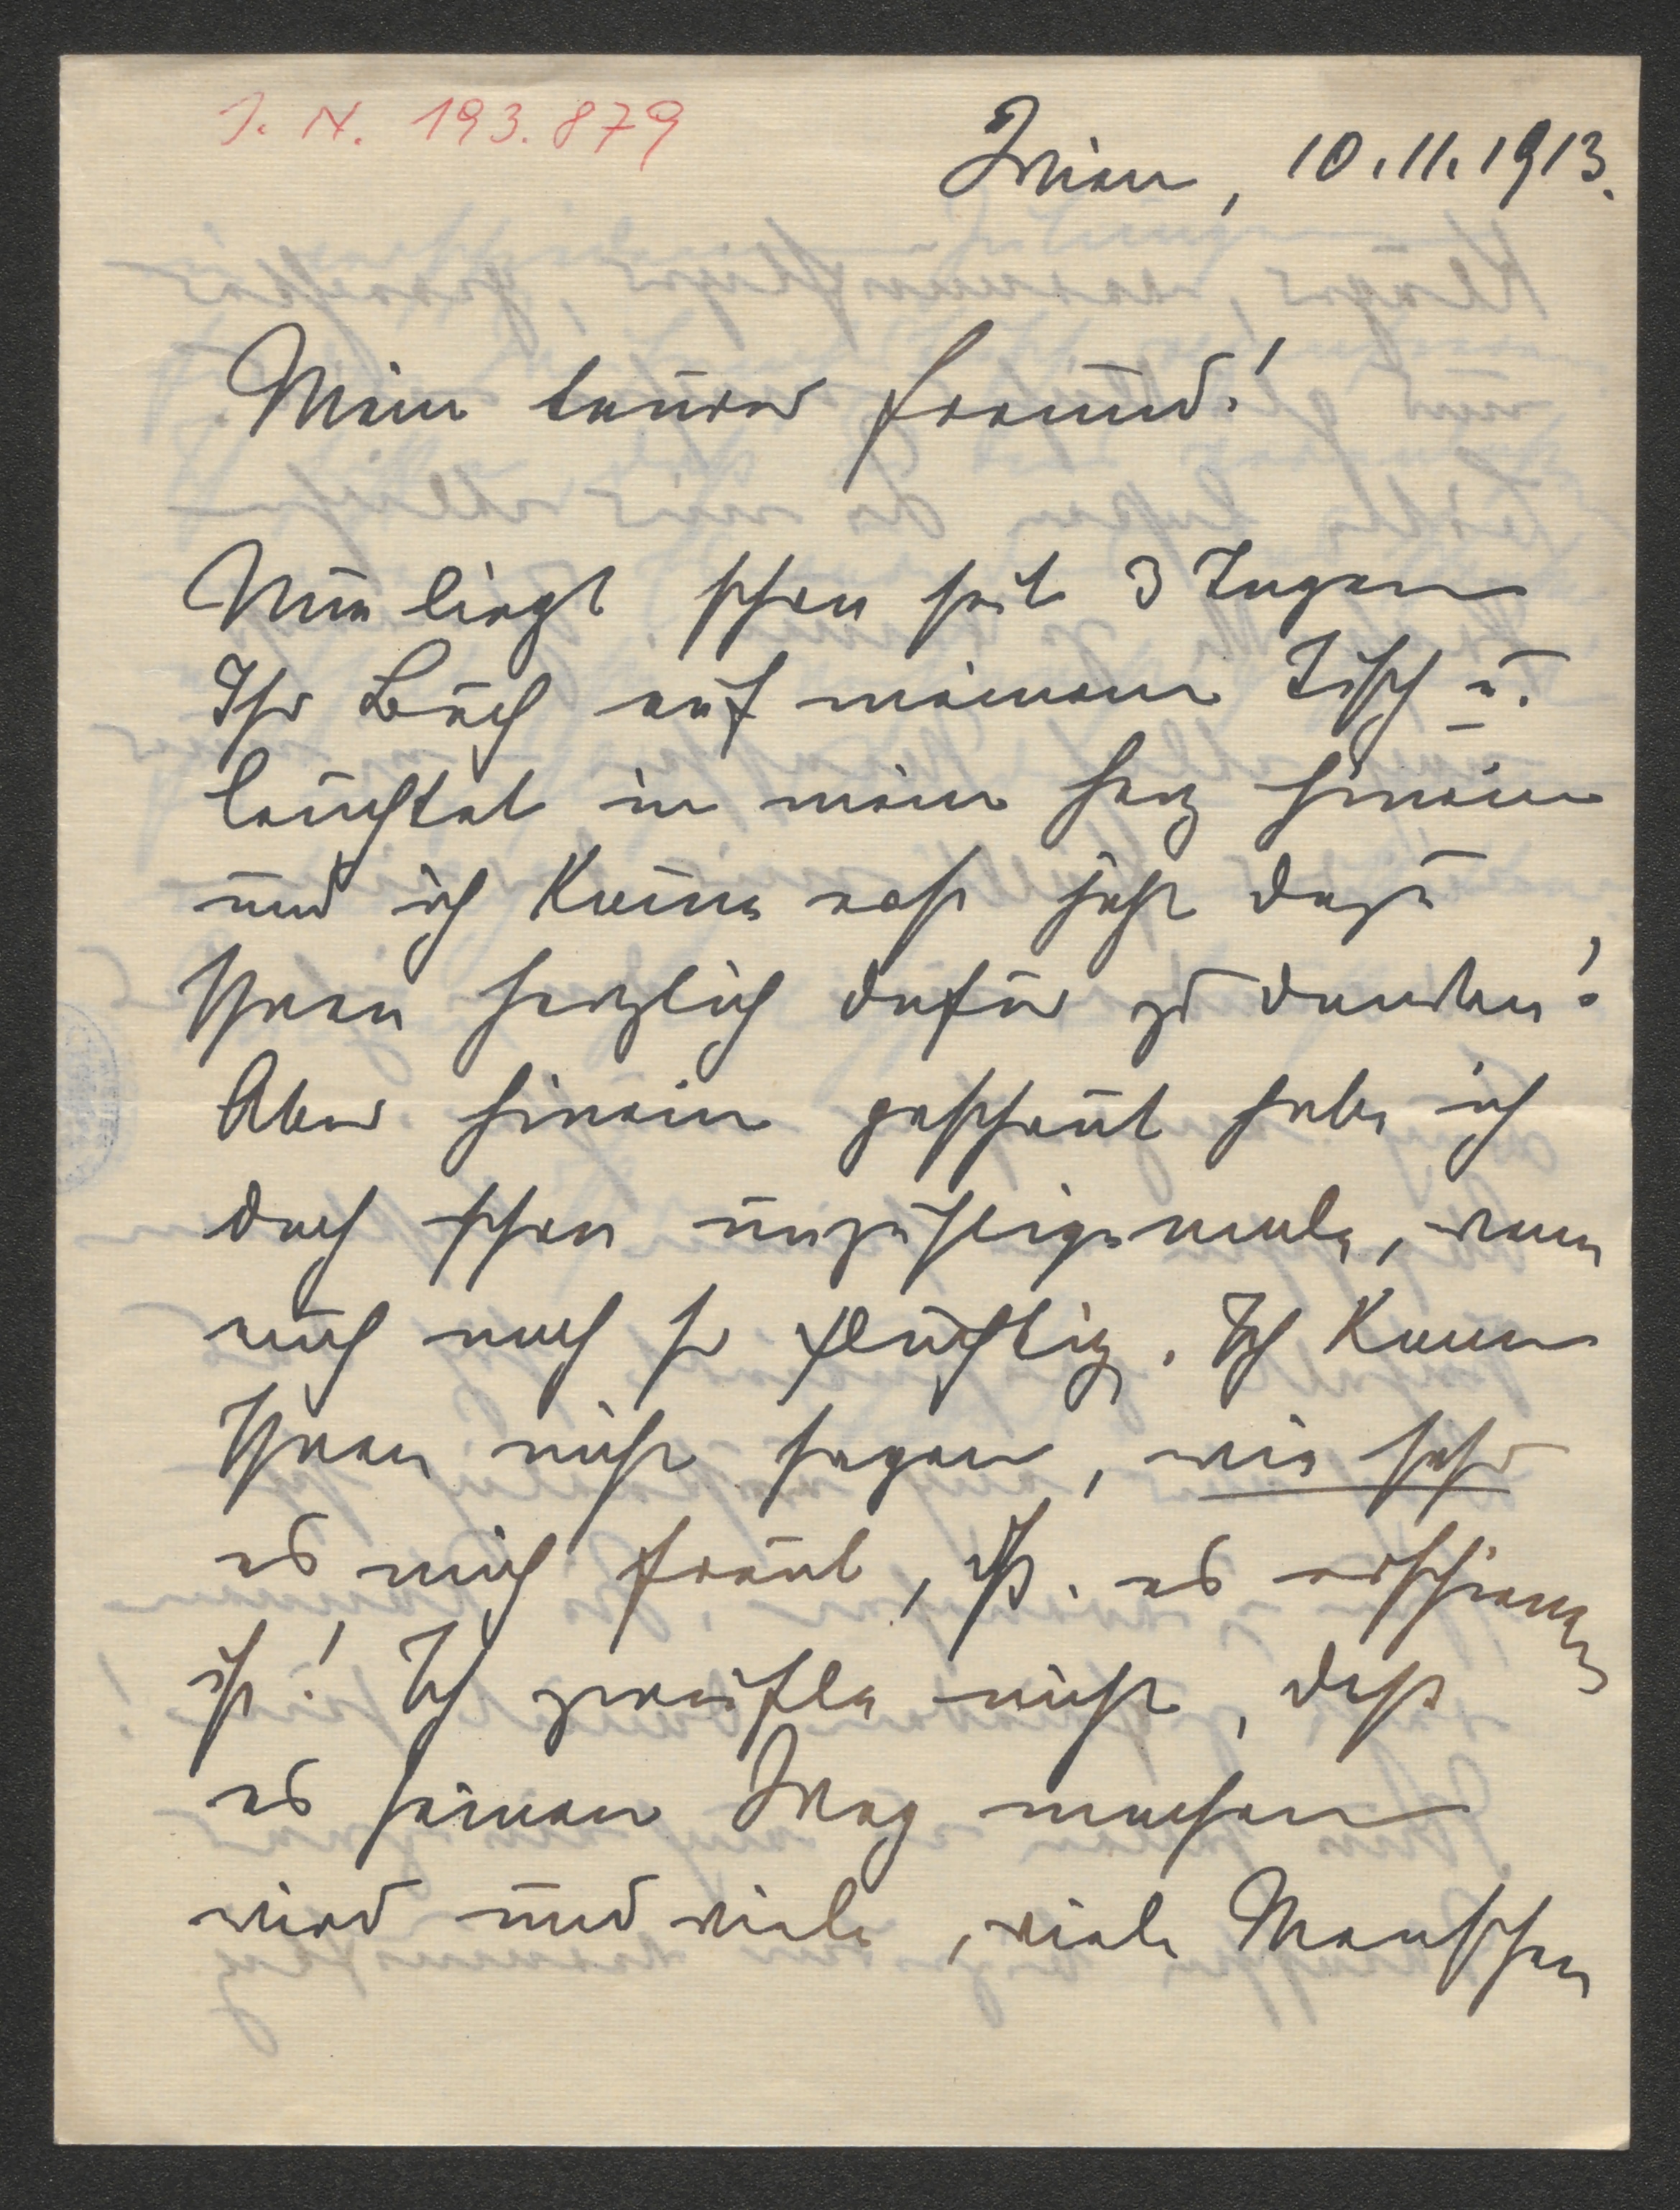 J. N. 193.879
Wien, 10.11.1913.
Mein teurer Freund!
Nun liegt schon seit 3 Tagen
Ihr Buch auf meinem Tisch u.
leuchtet in mein Herz hinein
und ich komme erst jetzt dazu
Ihnen herzlich dafür zu danken!
Aber hinein geschaut habe ich
doch schon unzähligemale, wenn
auch noch so flüchtig. Ich kann
Ihnen nicht sagen, wie sehr
es mich freut, dß. es erschienen
ist! Ich zweifle nicht, daß
es seinen Weg machen
wird und viele, viele Menschen